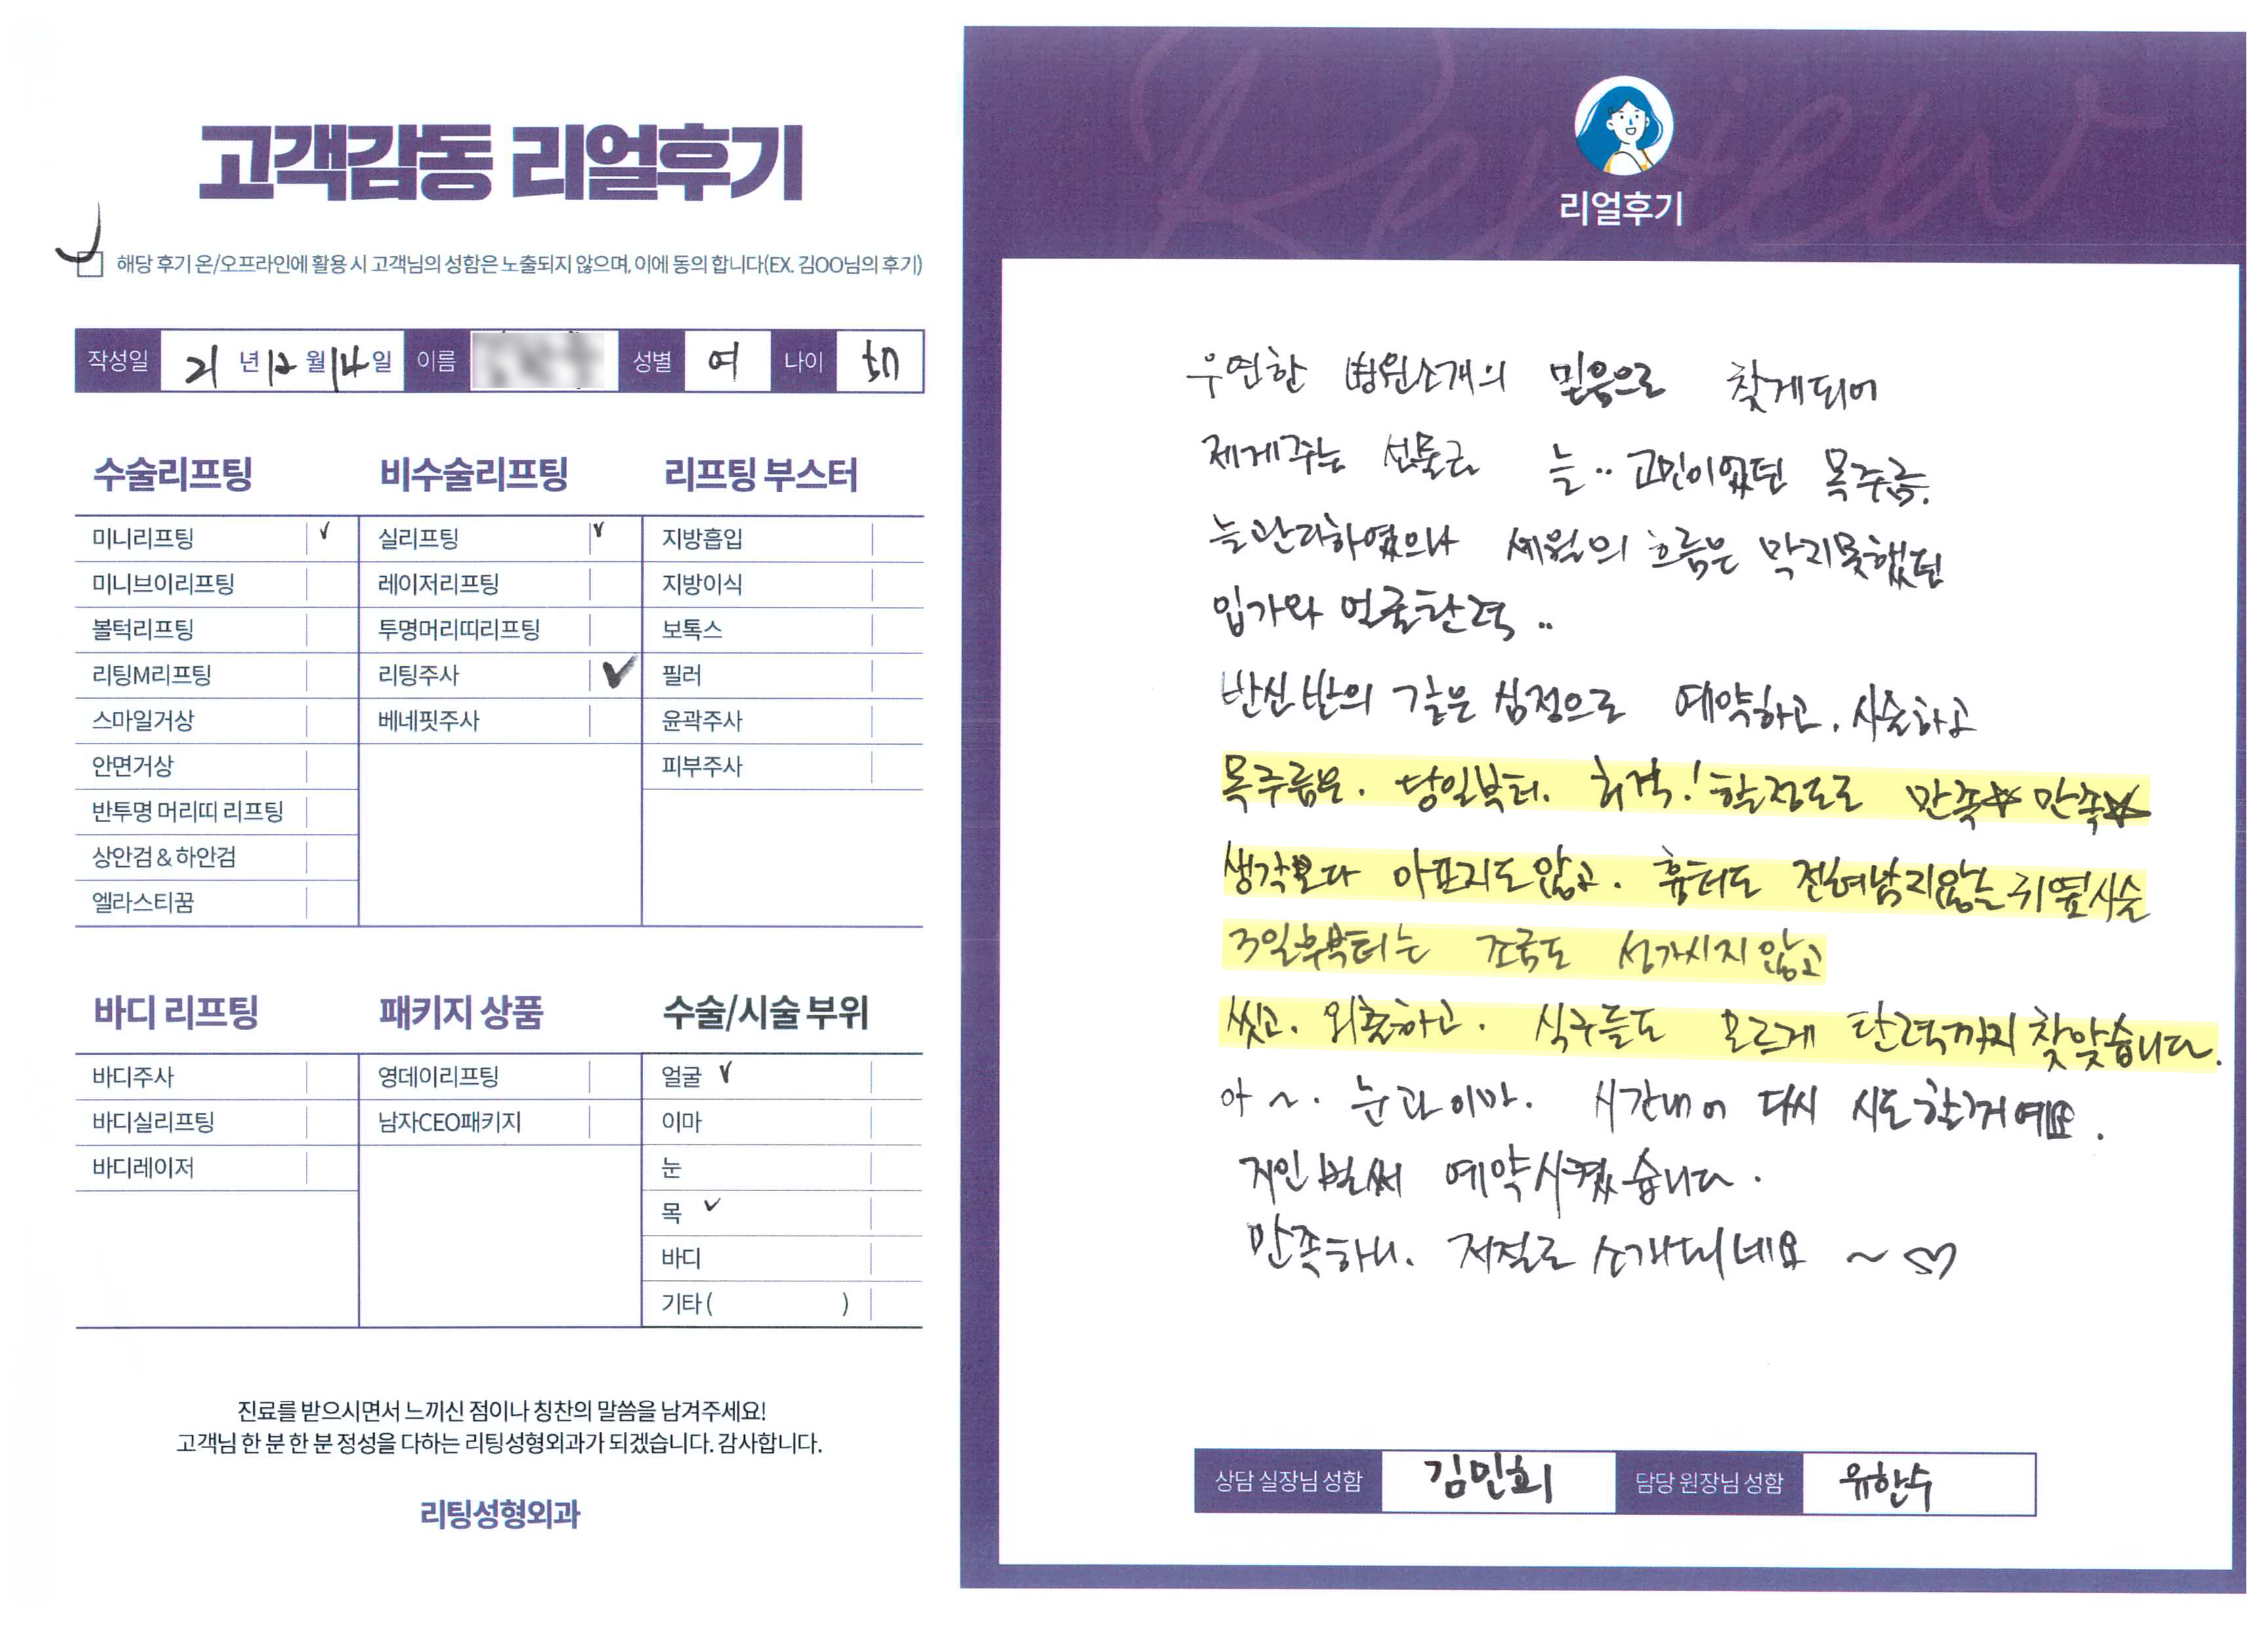 고객감동 리얼후기
해당 후기 온/오프라인에 활용 시 고객님의 성함은 노출되지 않으며, 이에 동의 합니다(EX. 김OO님의 후기)
작성일 21 년 12 월 14 일 이름 성별 여 나이
수술리프팅
미니리프팅 ✓
미니브이리프팅
볼턱리프팅
리팅M리프팅
스마일거상
안면거상
반투명 머리띠 리프팅
상안검 & 하안검
엘라스티꿈
비수술리프팅
실리프팅 ✓
레이저리프팅
투명머리띠리프팅
리팅주사 ✓
베네핏주사
리프팅 부스터
지방흡입
지방이식
보톡스
필러
윤곽주사
피부주사
바디 리프팅
바디주사
바디실리프팅
바디레이저
패키지 상품
영데이리프팅
남자CEO패키지
수술/시술 부위
얼굴 ✓
이마
눈
목 ✓
바디
기타 ( )
진료를 받으시면서 느끼신 점이나 칭찬의 말씀을 남겨주세요!
고객님 한 분 한 분 정성을 다하는 리팅성형외과가 되겠습니다. 감사합니다.
리팅성형외과
Review
리얼후기
우연한 병원소개의 믿음으로 찾게되어
제게주는 선물로 늘.. 고민이었던 목주름.
늘관리하였으나 세월의 흐름은 막지못했던
입가와 얼굴탄력..
반신반의 같은 심정으로 예약하고. 시술하고
목주름은. 당일부터. 허걱! 할정도로 만족☆ 만족☆
생각보다 아프지도않고. 흉터도 전혀남지않는 귀옆시술
3일후부터는 조금도 성가시지않고
씻고. 외출하고. 식구들도 모르게 탄력까지 찾았습니다.
아~. 눈과이마. 시간내어 다시 시도할거예요.
지인 벌써 예약시켰습니다.
만족하니. 저절로 소개되네요 ~ ♡
상담 실장님 성함 김민희 담당 원장님 성함 유한수